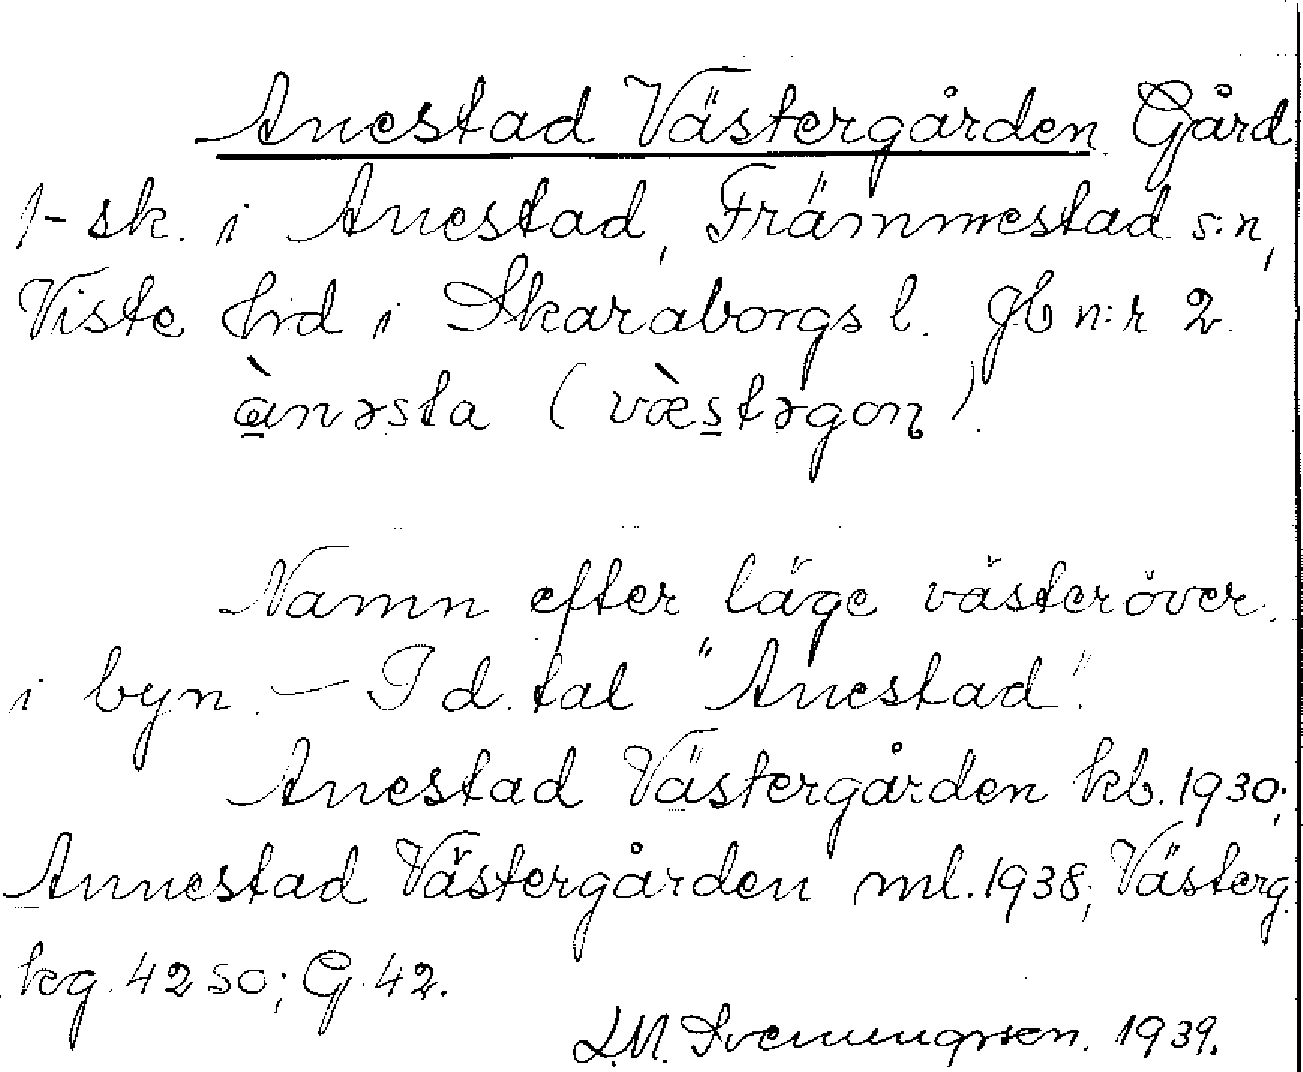 Anestad Västergården Gård
1-sk. i Anestad, Främmestad s:n,
Viste hrd i Skaraborgs l. Jb n:r 2.
ànəsta (væ̀stəgoɳ).
Namn efter läge västeröver
i byn. — I d. tal "Anestad".
Anestad Västergården kb. 1930;
Annestad Västergården ml. 1938; Västerg.
kg. 42 SO; G. 42.
1939.